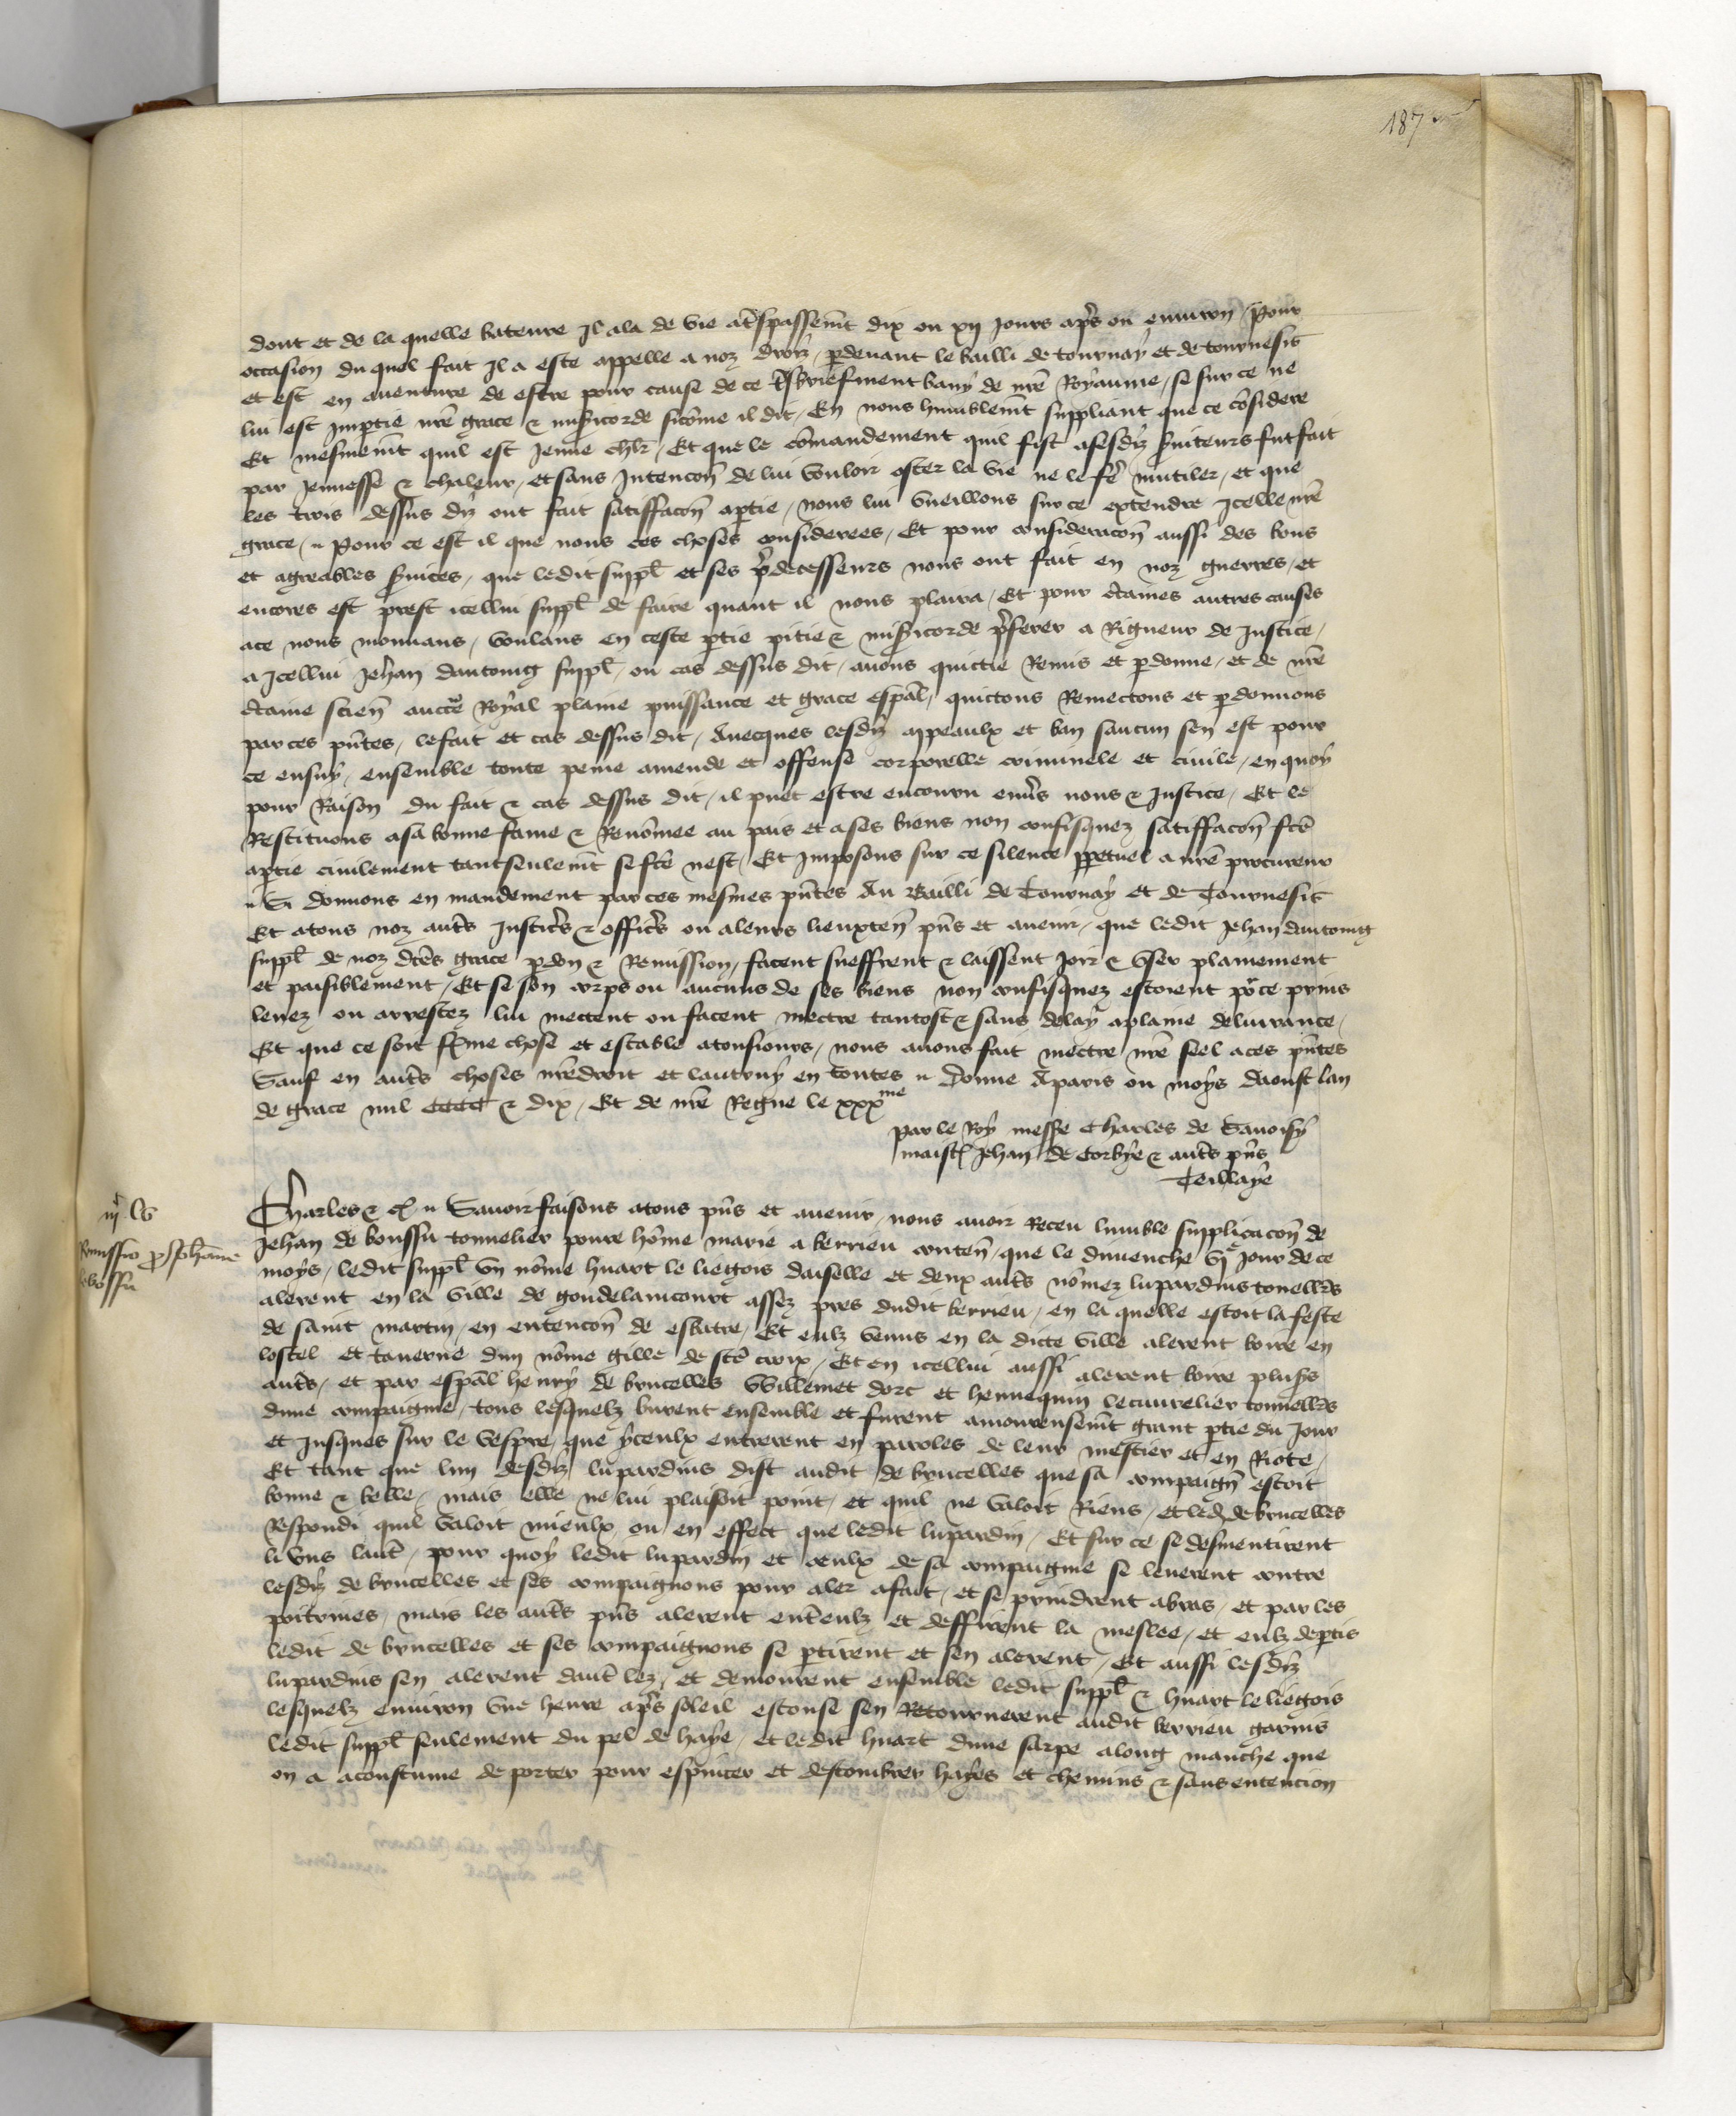 187
dont et de la quelle bateure Il ala de vie at̃spassem̃t dix ou xij Jours ap̃s ou enuiron / Pour
occasion du quel fait Il a este appelle a noz droiz / p̱deuant le bailli de tournay et de tournesis
et est en auenture de estre pour cause de ce t̃sbriefment bany de nr̃e Royaume / se sur ce ne
lui est Imp̱tie nr̃e grace & mis̃icorde sicõme il dit / En nous humblem̃t suppliant que ce cõsidere
Et mesmem̃t quil est Jeune chl̃r / Et que le cõmandement quil fist asesdiz s̃uiteurs fut fait
par Jeunesse & chaleur / et sans Intencõn de lui vouloir oster la vie ne le fẽ mutiler / et que
les trois dessus diz ont fait satiffacõn ap̱tie / nous lui vueillons sur ce extendre Icelle nr̃e
grace / Pour ce est il que nous ces choses considerees / Et pour consideracõn aussi des bons
et agreables s̃uices / que ledit suppl̃ et ses p̃decesseurs nous ont fait en noz guerres / et
encores est prest icellui suppl̃ de faire quant il nous plaira / Et pour c̃taines autres causes
ace nous mouuans / voulans en ceste p̱tie pitie & mis̃icorde p̃ferer a Rigueur de Justice /
a Icellui Jehan dantoing suppl̃ ou cas dessus dit / auons quictie Remis et p̱donne / et de nr̃e
c̃taine scien̄ aucte Royal plaine puissance et grace esp̃al / quictons Remectons et p̱donnons
par ces pñtes / le fait et cas dessus dit / Auecques lesdiz appeaulx et ban saucun sen est pour
ce ensuy / ensemble toute peine amende et offense corporelle criminele et ciuile / en quoy
pour Raison du fait & cas dessus dit / il puet estre encouru enũs nous & Justice / Et le
Restituons asa bonne fame & Renõmee au pais et a ses biens non confisquez satiffacõn fc̃e
ap̱tie ciuilement tantseulem̃t se fc̃e nest / Et Imposons sur ce silence p̱petuel a nr̃e procureur
Si donnons en mandement par ces mesmes pñtes Au Bailli de Tournay et de Tournesis
Et atous noz aut̃s Justic̃s & offic̃s ou aleurs lieuxten̄ pñs et auenir / que ledit Jehan dantoing
suppl̃ de noz dc̃es grace p̱don & Remission / facent sueffrent & laissent Joir & vser plainement
et paisiblement / Et se son corps ou aucuns de ses biens non confisquez estoient po᷑ ce prins
leuez ou arrestez lui mectent ou facent mectre tantost & sans delay aplaine deliurance /
Et que ce soit f̃me chose et estable atousiours / nous auons fait mectre nr̃e seel aces pñtes
Sauf en aut̃s choses nr̃e droit et lautruy en toutes Donne Aparis ou moys daoust lan
de grace mil CCCC & dix / Et de nr̃e Regne le xxxme
par le Roy messe Charles de Sauoisy
maistr̃ Jehan de Corbye & aut̃s pñs
Teillaye
Charles & c̃ Sauoir faisons atous pñs et auenir / nous auoir Receu lumble supplicacõn de
Remissio p̱ Joh̃anne
de bossu
Jehan de boussu tonnelier poure hõme marie a berrieu conten̄ / que le dimenche vje Jour de ce
moys / ledit suppl̃ vn nõme huart le liegois daiselle et deux aut̃s nõmez lupardins tonell̃rs
alerent en la ville de goudelaincourt assez pres dudit berrieu / en la quelle estoit la feste
de saint martin / en entencõn de esbatre / Et eulz venus en la dicte ville alerent boire en
lostel et tauerne dun nõme Gille de sc̃e croix / Et en icellui aussi alerent boire plus̃s
aut̃s / et par esp̃al henry de brucelles Willemet dort et hennequin lecuurelier tonnell̃rs
dune compaignie / tous lesquelz burent ensemble et furent amoureusem̃t grant p̱tie du Jour
et Jusques sur le vespre / que yceulx entrerent en paroles de leur mestier et en Riote /
Et tant que lun desdiz lupardins dist audit de brucelles que sa compaign̄ estoit
bonne & belle / mais elle ne lui plaisoit point / et quil ne valoit Riens / et led̃ de brucelles
Respondi quil valoit mieulx ou en effect que ledit lupardin / Et sur ce se desmentirent
li vns laut̃ / pour quoy ledit lupardin et ceulx de sa compaignie se leuerent contre
lesdiz de brucelles et ses compaignons pour aler afait / et se prindrent abras / et par les
poitrines / mais les aut̃s pñs alerent ent̃ eulz et deffirent la meslee / et eulz dep̱tis
ledit de brucelles et ses compaignons se p̱tirent et sen alerent / Et aussi lesdiz
lupardins sen alerent daut̃ lez / et demourent ensemble ledit suppl̃ & huart le liegois
lesquelz enuiron vne heure ap̃s soleil esconse sen Retournerent audit berrieu garnis
ledit suppl̃ seulement du pel de haye / et ledit huart dune sarpe along manche que
on a acoustume de porter pour espincer et destombrer hayes et chemins & sans entencion